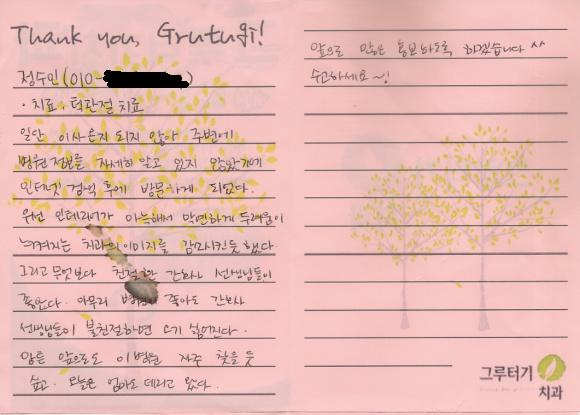 Thank you, Grutugi!
정수인(010- )
· 치료 : 턱관절 치료
일단 이사온지 되지 않아 주변에
병원정보를 자세히 알고 있지 않았기에
인터넷 검색 후에 방문하게 되었다.
우선 인테리어가 아늑해서 막연하게 두려움이
느껴지는 치과의 이미지를 감소시킨듯 했다.
그리고 무엇보다 친절한 간호사 선생님들이
좋았다. 아무리 병원이 좋아도 간호사
선생님들이 불친절하면 오기 싫어진다.
암튼 앞으로도 이병원 자주 찾을 듯
싶고. 오늘은 엄마도 데리고 왔다.
앞으로 많은 홍보하도록 하겠습니다 ^^
수고하세요~!
그루터기
치과